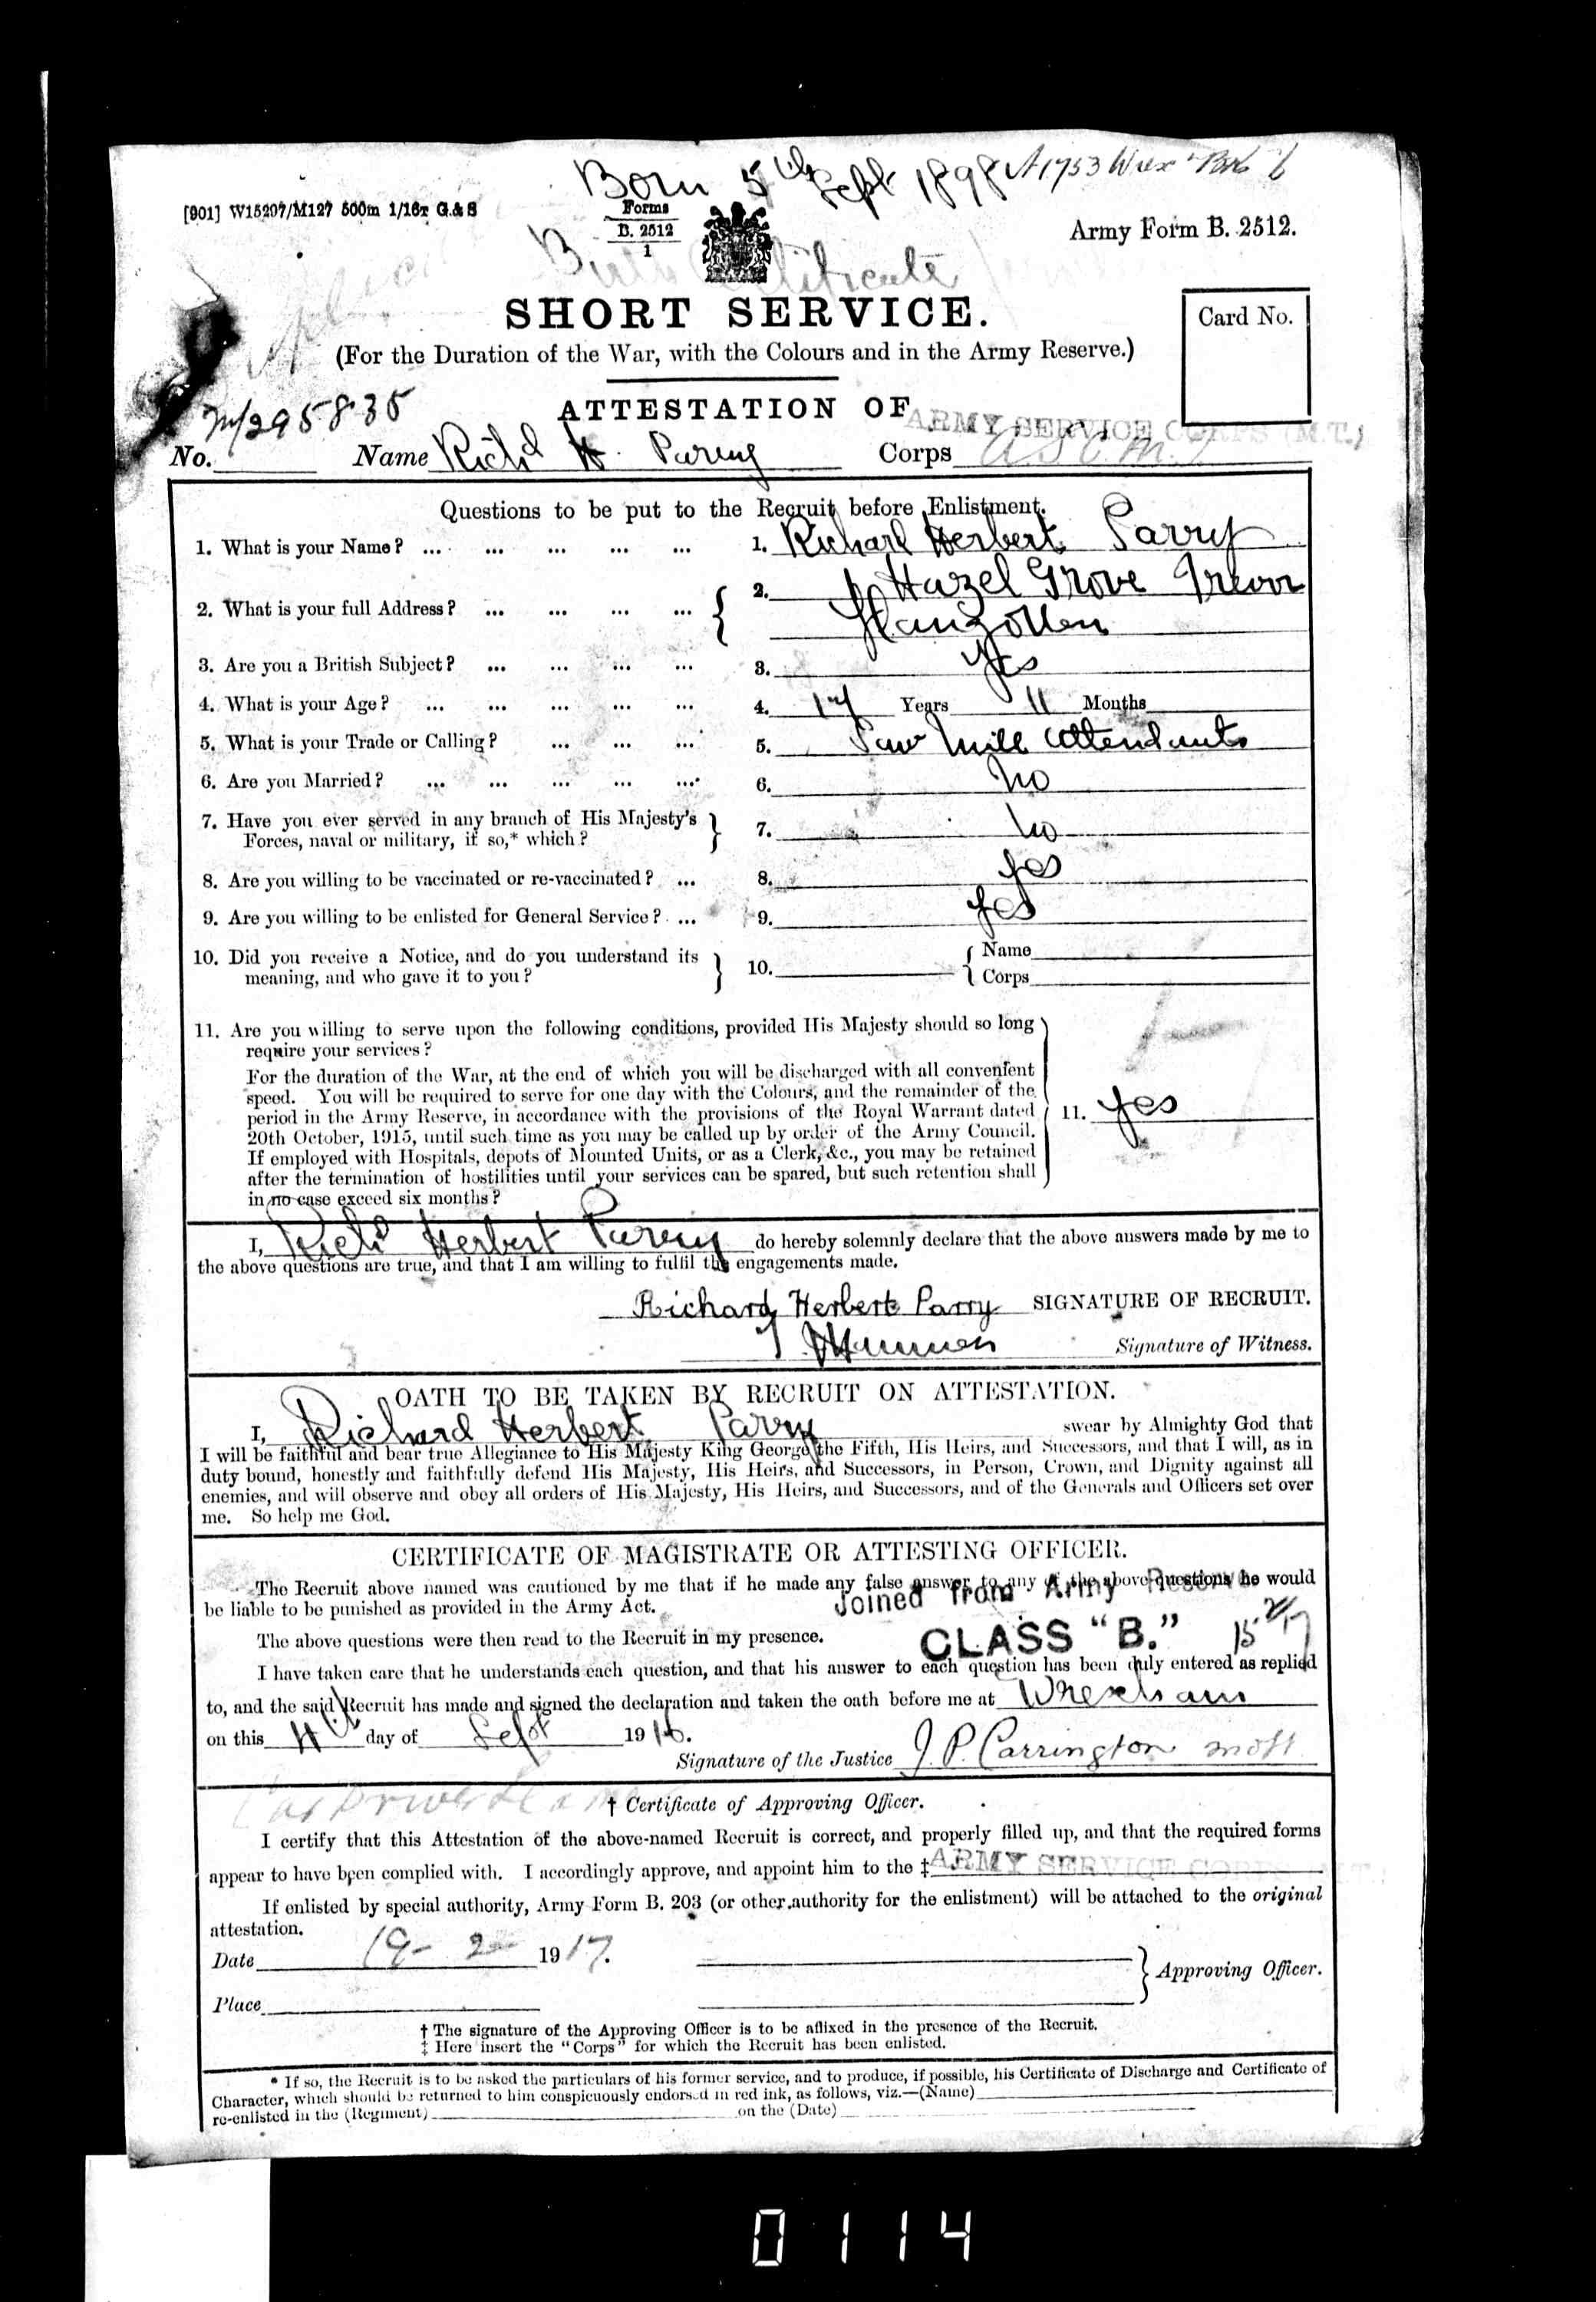 Born 5th Sept 1898 A1753 Wrex
[901] W15297/M127 500m 1/16T G.& S
Forms
B. 2512
1
Army Form B. 2512.
Birth Certificate
SHORT SERVICE.
Card No.
(For the Duration of the War, with the Colours and in the Army Reserve.)
M/295835
ATTESTATION OF
ARMY SERVICE CORPS (M.T.)
No. Name Richd H. Parry Corps A.S.C. M.T
Questions to be put to the Recruit before Enlistment.
1. What is your Name? ... ... ... ... ... 1. Richard Herbert Parry
2. What is your full Address? ... ... ... ... { 2. Hazel Grove Trevor
Llangollen
3. Are you a British Subject? ... ... ... ... 3. Yes
4. What is your Age? ... ... ... ... ... 4. 17 Years 11 Months
5. What is your Trade or Calling? ... ... ... 5. Saw Mill Attendant
6. Are you Married? ... ... ... ... ... 6. No
7. Have you ever served in any branch of His Majesty's
Forces, naval or military, if so,* which? } 7. No
8. Are you willing to be vaccinated or re-vaccinated? ... 8. Yes
9. Are you willing to be enlisted for General Service? ... 9. Yes
10. Did you receive a Notice, and do you understand its
meaning, and who gave it to you? } 10. { Name
Corps
11. Are you willing to serve upon the following conditions, provided His Majesty should so long
require your services?
For the duration of the War, at the end of which you will be discharged with all convenient
speed. You will be required to serve for one day with the Colours, and the remainder of the
period in the Army Reserve, in accordance with the provisions of the Royal Warrant dated
20th October, 1915, until such time as you may be called up by order of the Army Council.
If employed with Hospitals, depots of Mounted Units, or as a Clerk, &c., you may be retained
after the termination of hostilities until your services can be spared, but such retention shall
in no case exceed six months?
11. Yes
I, Richd Herbert Parry do hereby solemnly declare that the above answers made by me to
the above questions are true, and that I am willing to fulfil the engagements made.
Richard Herbert Parry SIGNATURE OF RECRUIT.
Signature of Witness.
OATH TO BE TAKEN BY RECRUIT ON ATTESTATION.
I, Richard Herbert Parry swear by Almighty God that
I will be faithful and bear true Allegiance to His Majesty King George the Fifth, His Heirs, and Successors, and that I will, as in
duty bound, honestly and faithfully defend His Majesty, His Heirs, and Successors, in Person, Crown, and Dignity against all
enemies, and will observe and obey all orders of His Majesty, His Heirs, and Successors, and of the Generals and Officers set over
me. So help me God.
CERTIFICATE OF MAGISTRATE OR ATTESTING OFFICER.
The Recruit above named was cautioned by me that if he made any false answer to any of the above questions he would
be liable to be punished as provided in the Army Act.
Joined from Army Reserve
The above questions were then read to the Recruit in my presence.
CLASS "B." 15/2/17
I have taken care that he understands each question, and that his answer to each question has been duly entered as replied
to, and the said Recruit has made and signed the declaration and taken the oath before me at Wrexham
on this 4th day of Sept 1916.
Signature of the Justice J. P. Carrington
† Certificate of Approving Officer.
I certify that this Attestation of the above-named Recruit is correct, and properly filled up, and that the required forms
appear to have been complied with. I accordingly approve, and appoint him to the ‡ ARMY SERVICE CORPS M.T.
If enlisted by special authority, Army Form B. 203 (or other authority for the enlistment) will be attached to the original
attestation.
Date 19 - 2 - 1917.
} Approving Officer.
Place
† The signature of the Approving Officer is to be affixed in the presence of the Recruit.
‡ Here insert the "Corps" for which the Recruit has been enlisted.
* If so, the Recruit is to be asked the particulars of his former service, and to produce, if possible, his Certificate of Discharge and Certificate of
Character, which should be returned to him conspicuously endorsed in red ink, as follows, viz.—(Name)
re-enlisted in the (Regiment) on the (Date)
0114